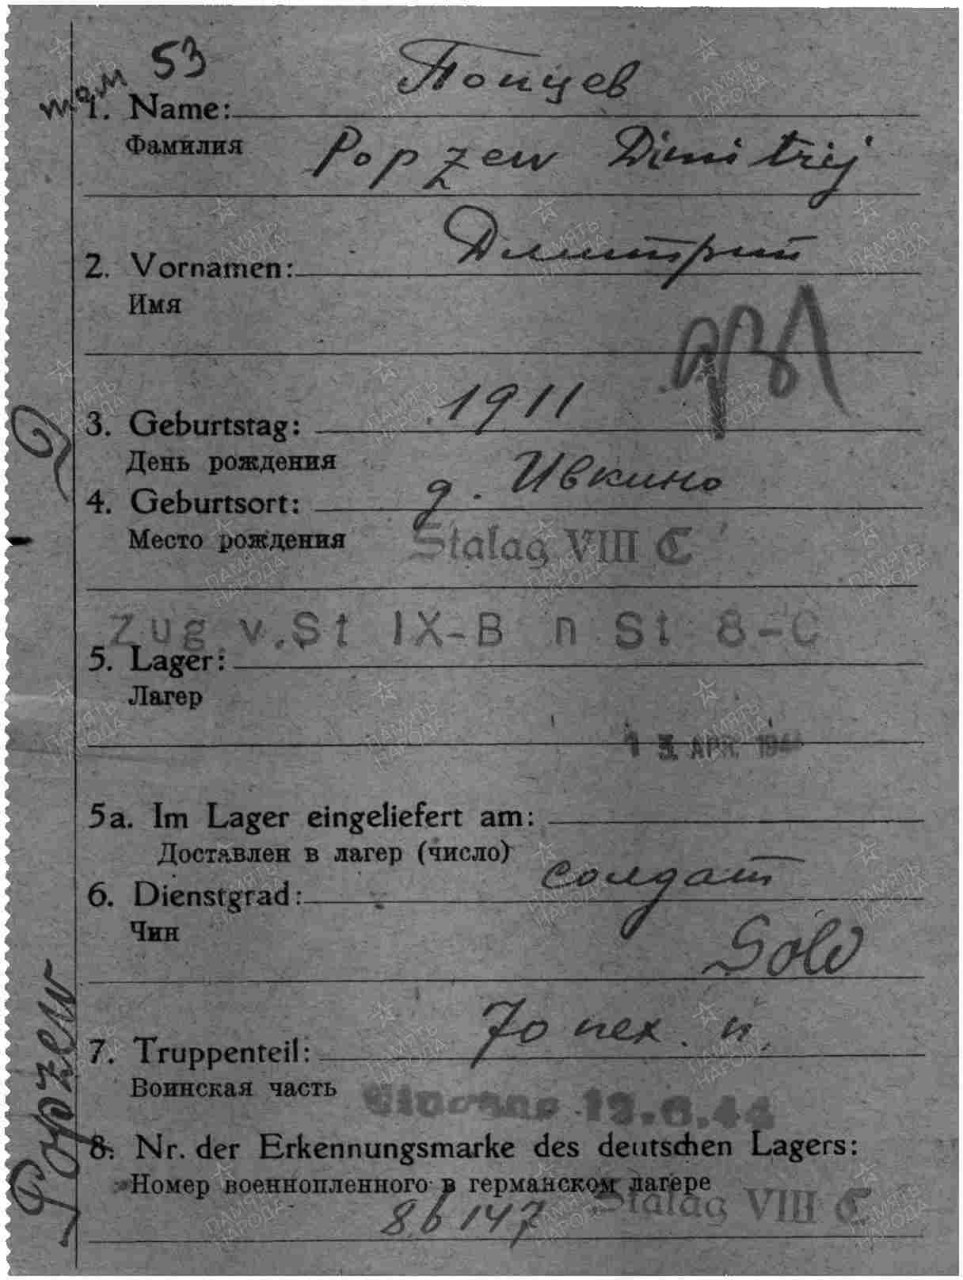 там 53
Попцев
1. Name:
Фамилия
Popzew Dimitrij
Димитрий
2. Vornamen:
Имя
1911
3. Geburtstag:
День рождения
д. Ивкино
4. Geburtsort:
Место рождения
Stalag VIII C
Zug. v. St IX-B n St 8-C
5. Lager:
Лагерь
13. APR. 1944
5a. Im Lager eingeliefert am:
Доставлен в лагер (число)
солдат
6. Dienstgrad:
Чин
Sold
70 пех. п.
7. Truppenteil:
Воинская часть
13.6.44
8. Nr. der Erkennungsmarke des deutschen Lagers:
Номер военнопленного в германском лагере
Stalag VIII C
86147
Popzew
ПАМЯТЬ НАРОДА